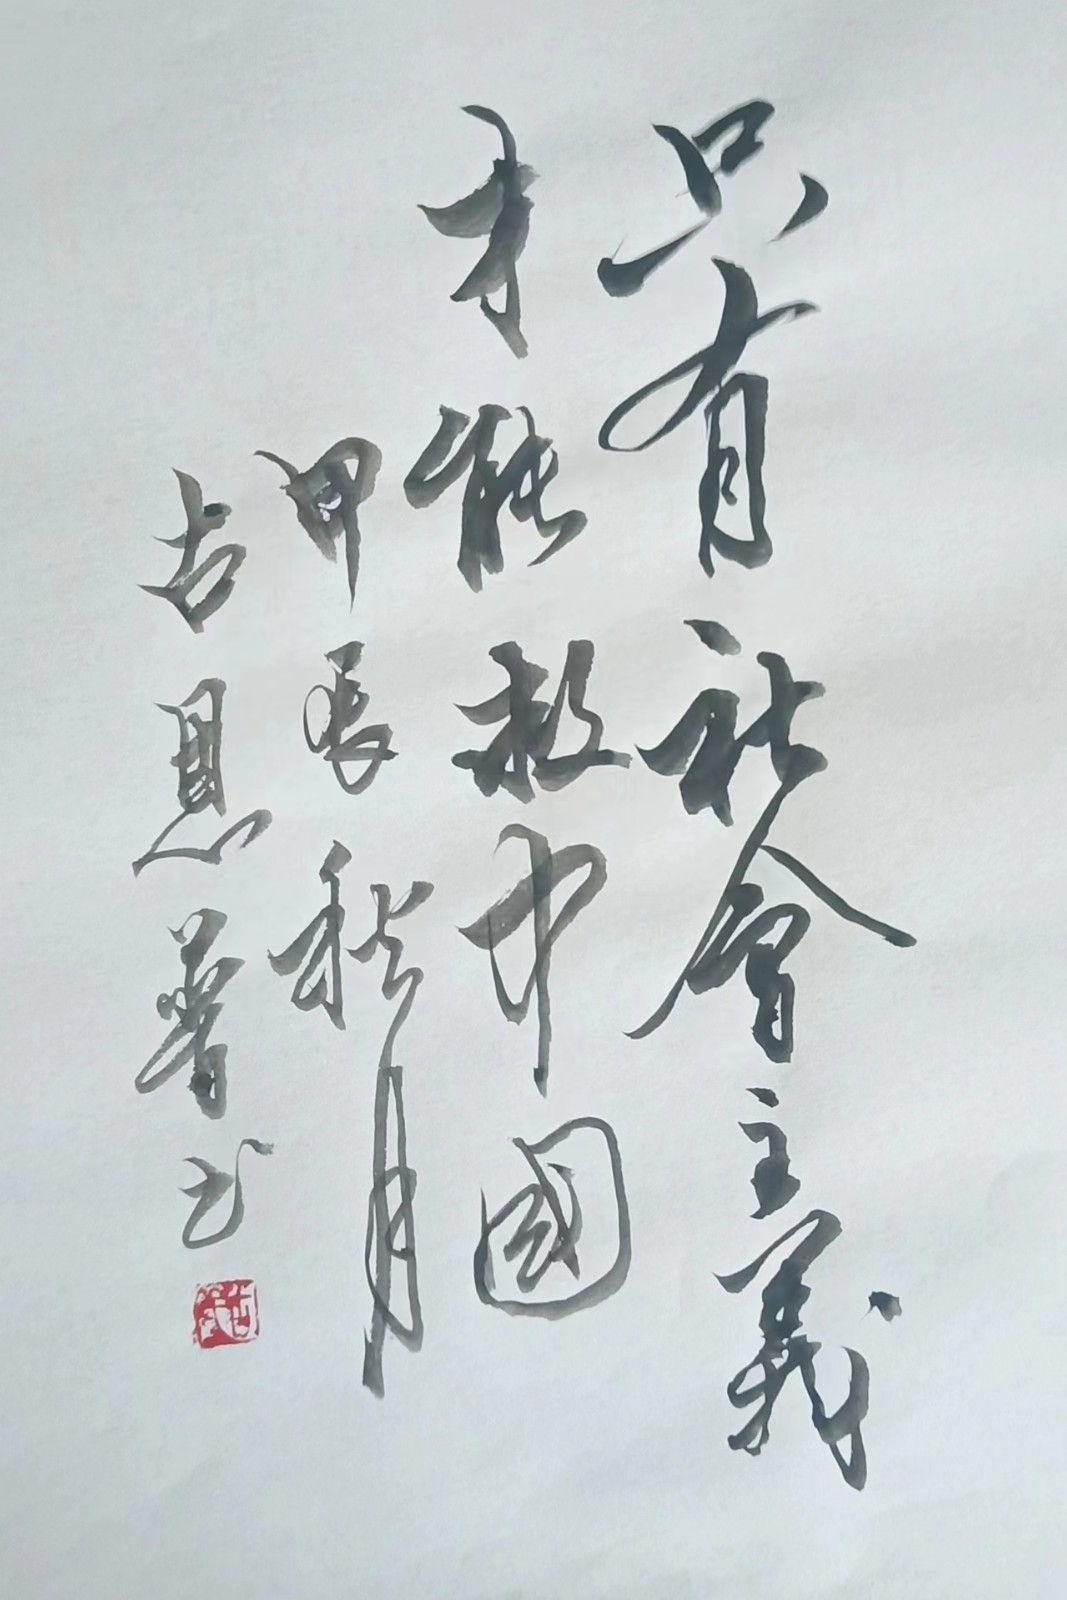 只有社會主義
才能救中國
甲辰秋月
吉恩普书